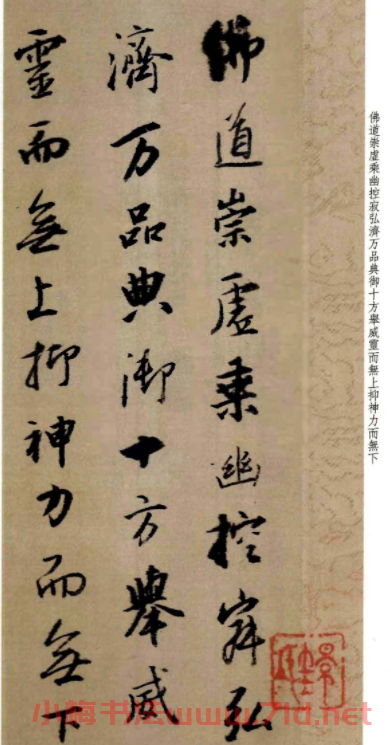 佛道崇虛乘幽控寂弘
濟万品典御十方舉威
靈而無上抑神力而無下
佛道崇虛乘幽控寂弘濟万品典御十方舉威靈而無上抑神力而無下
小梅书法www.71d.net